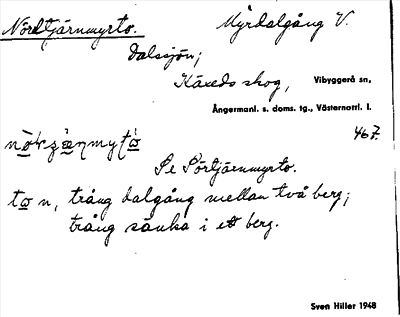 Nördtjärnmyrto. Myrdalgång V.
Dalssjön;
Käxeds skog, Vibyggerå sn,
Ångermanl. s. doms. tg., Västernorrl. l.
467.
Se Sörtjärnmyrto.
to n, trång dalgång mellan två berg;
trång sänka i ett berg.
Sven Hiller 1948